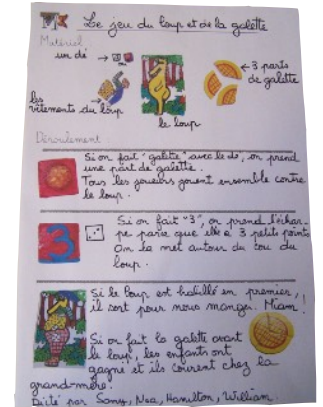 Le jeu du loup et de la galette
Matériel
un dé
3 parts
de galette
les
vêtements du loup
le loup
Déroulement :
Si on fait "galette" avec le dé, on prend
une part de galette.
Tous les joueurs jouent ensemble contre
le loup.
3
Si on fait "3", on prend l'échar-
pe parce que elle a 3 petits points
On la met autour du cou du
loup.
Si le loup est habillé en premier,
il sort pour nous manger. Miam!
Si on fait la galette avant
le loup, les enfants ont
gagné et ils courent chez la
grand-mère!
Dicté par Samy, Noa, Hamilton, William.